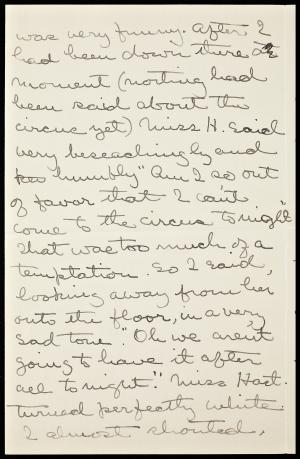 was very funny. After I
had been down there a
moment (nothing had
been said about the
circus yet) Miss H. said
very beseachingly and
humbly "Am I so out
of favor that I can't
come to the circus to night"
That was too much of a
temptation. So I said,
looking away from her
onto the floor, in a very
sad tone. "Oh we aren't
going to have it after
all to night." Miss Hast.
turned perfectly white.
I almost shouted,